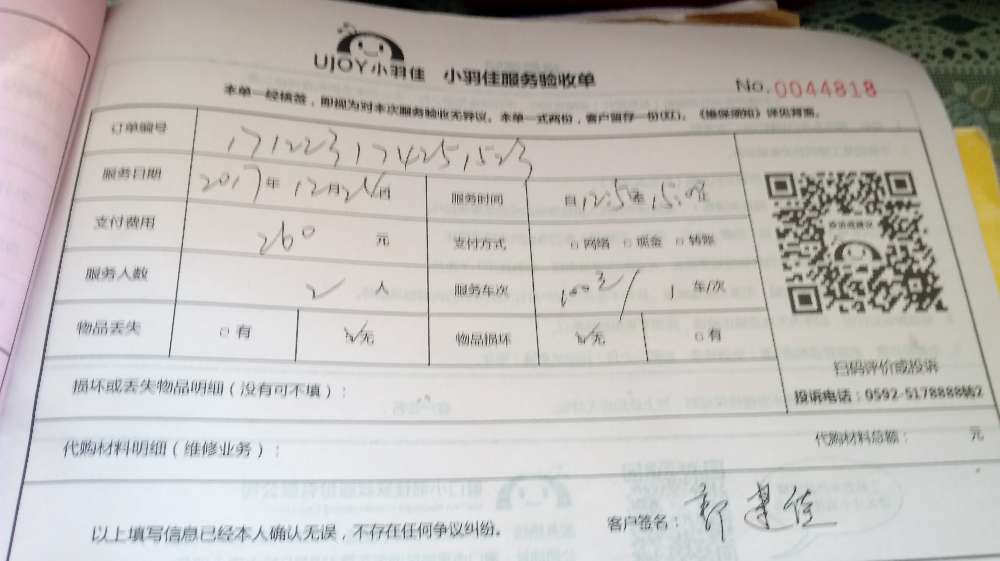 UJOY小羽佳 小羽佳服务验收单
No.0044818
本单一经核签，即视为对本次服务验收无异议。本单一式两份，客户留存一份(红)。《维保须知》详见背面。
订单编号 171223174251523
服务日期 2017年12月24日 服务时间 自12:5至15:0
支付费用 260元 支付方式 □网络 □现金 □转账
服务人数 2人 服务车次 车/次
物品丢失 □有 √无 物品损坏 √无 □有
扫码评价或投诉
投诉电话：0592-5178888转2
损坏或丢失物品明细（没有可不填）：
代购材料明细（维修业务）： 代购材料总额： 元
以上填写信息已经本人确认无误，不存在任何争议纠纷。 客户签名：